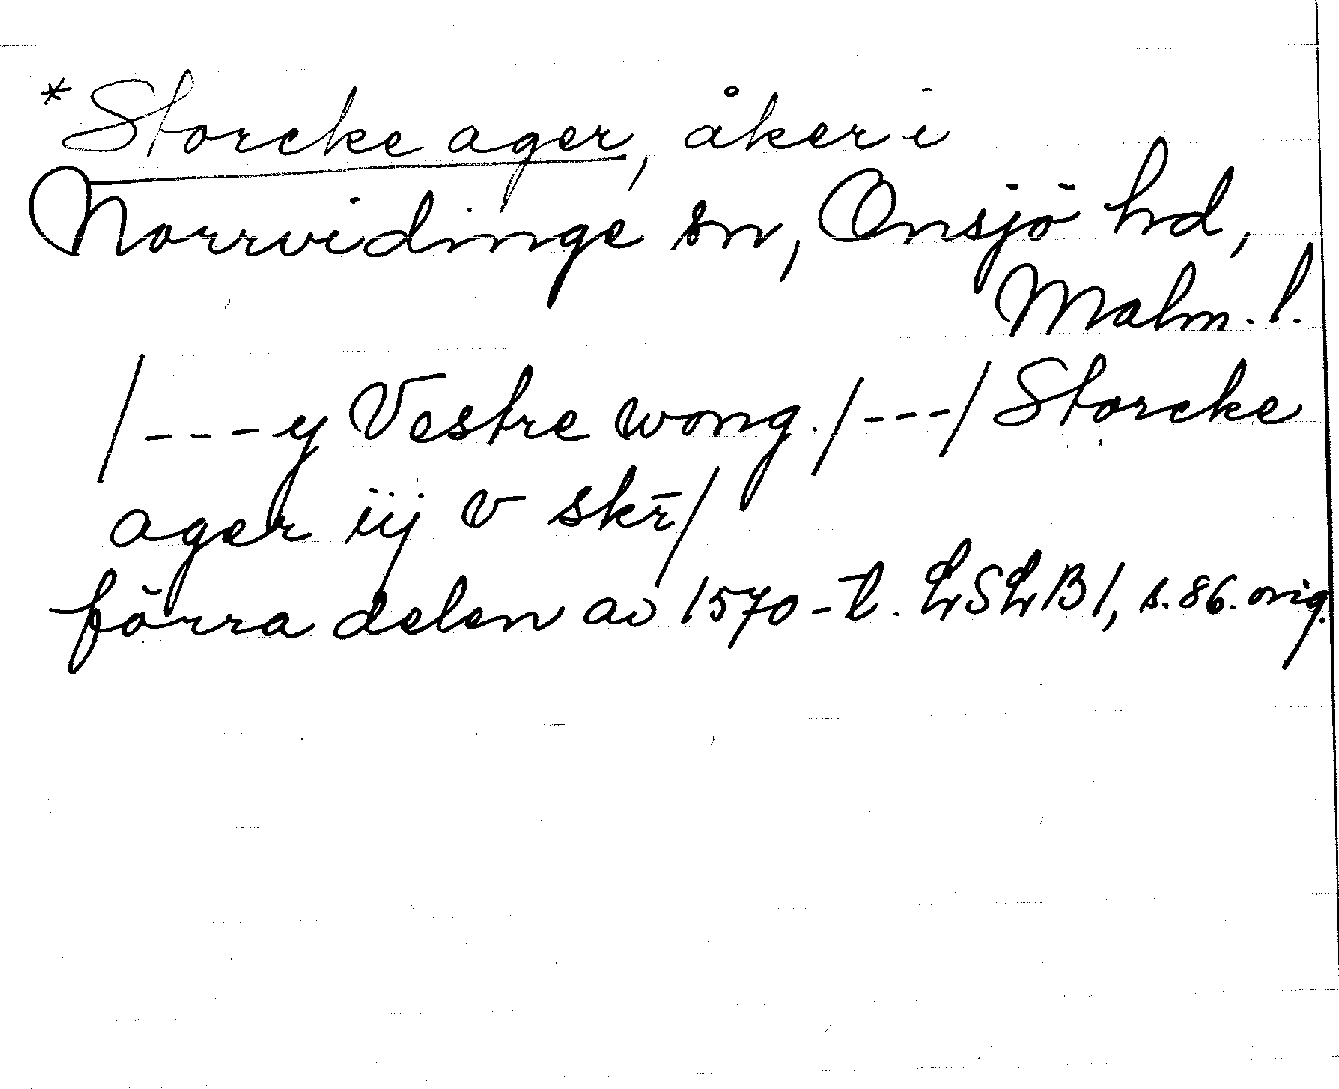 *Storcke ager, åker i
Norrvidinge sn, Onsjö hd,
Malm. l.
/---y Vestre wong./---/ Storcke
ager iij v skr̄/
förra delen av 1570-t. LSLB1, s.86. orig.